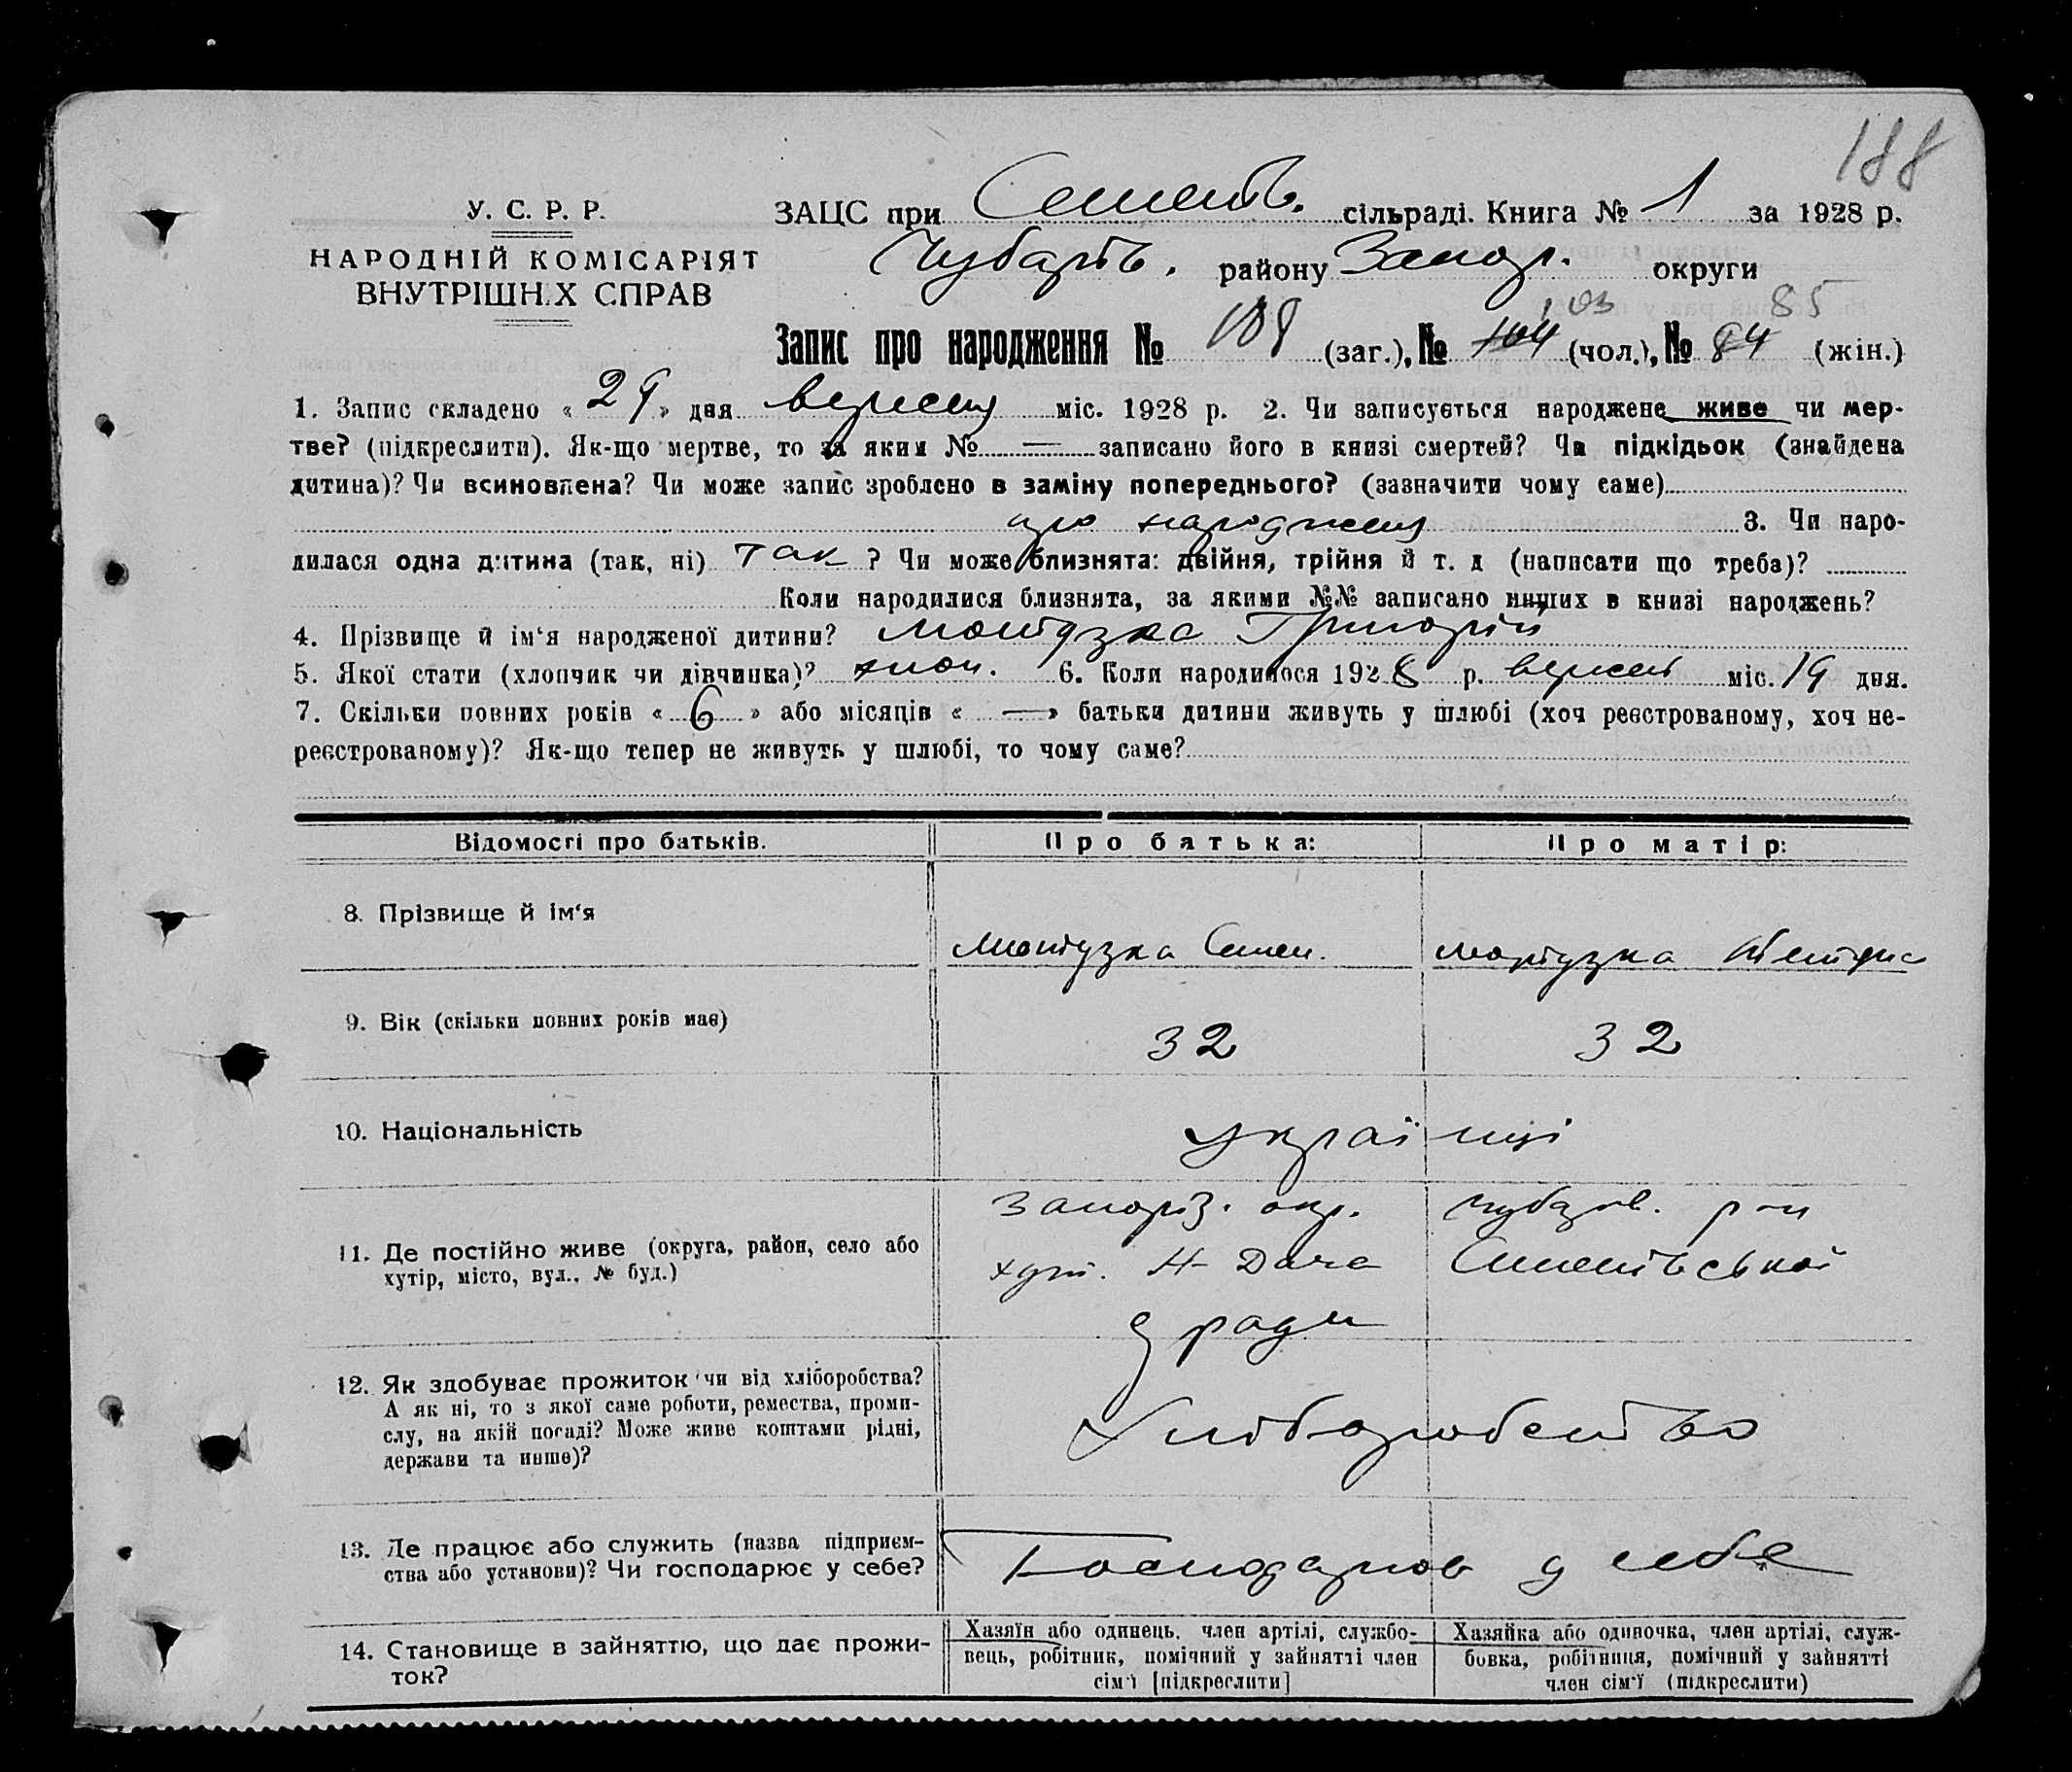 188
У. С. Р. Р.
НАРОДНІЙ КОМІСАРІЯТ
ВНУТРІШН.Х СПРАВ
ЗАЦС при Семенів. сільраді. Книга № 1 за 1928 р.
Чубарів. району Запор. округи
103 85
Запис про народження № 188 (заг.), № 104 (чол.), № 84 (жін.)
1. Запис складено « 29 » дня вересня міс. 1928 р. 2. Чи записується народжене живе чи мер-
тве? (підкреслити). Як-що мертве, то за яким № — записано його в книзі смертей? Чи підкідьок (знайдена
дитина)? Чи всиновлена? Чи може запис зроблено в заміну попереднього? (зазначити чому саме)
про народження 3. Чи наро-
дилася одна дитина (так, ні) так ? Чи може близнята: двійня, трійня й т. д (написати що треба)?
Коли народилися близнята, за якими №№ записано инших в книзі народжень?
4. Прізвище й ім‘я народженої дитини? Мотузка Григорій
5. Якої стати (хлопчик чи дівчинка)? хлоп. 6. Коли народилося 1928 р. вересня міс. 19 дня.
7. Скільки повних років « 6 » або місяців « — » батьки дитини живуть у шлюбі (хоч реєстрованому, хоч не-
реєстрованому)? Як-що тепер не живуть у шлюбі, то чому саме?
Відомості про батьків. Про батька: Про матір:
8. Прізвище й ім‘я Мотузка Семен. Мотузка
9. Вік (скільки повних років має) 32 32
10. Національність українці
11. Де постійно живе (округа, район, село або
хутір, місто, вул.. № буд.)
Запоріз. окр. Чубарів. р-н
хут. Н-Дача Семенівської
с ради
12. Як здобуває прожиток чи від хліборобства?
А як ні, то з якої саме роботи, ремества, проми-
слу, на якій посаді? Може живе коштами рідні,
держави та инше)?
Хліборобство
13. Де працює або служить (назва підприєм-
ства або установи)? Чи господарює у себе?
Господарюв у себе
14. Становище в зайняттю, що дає прожи-
ток?
Хазяїн або одинець. член артілі, службо-
вець, робітник, помічний у зайнятті член
сім‘ї [підкреслити]
Хазяйка або одиночка, член артілі, служ-
бовка, робітниця, помічний у зайнятті
член сім‘ї (підкреслити)